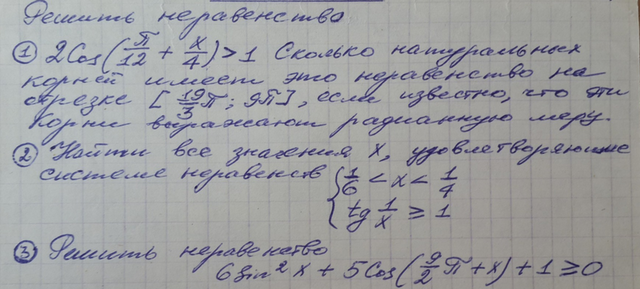 Решить неравенство
① 2Cos(π/12 + x/4) > 1 Сколько натуральных
корней имеет это неравенство на
отрезке [19/3 π; 9π], если известно, что эти
корни выражают радианную меру.
② Найти все значения x, удовлетворяющие
системе неравенств { 1/6 < x < 1/4
tg 1/x ≥ 1
③ Решить неравенство
6 Sin² x + 5 Cos(9/2 π + x) + 1 ≥ 0